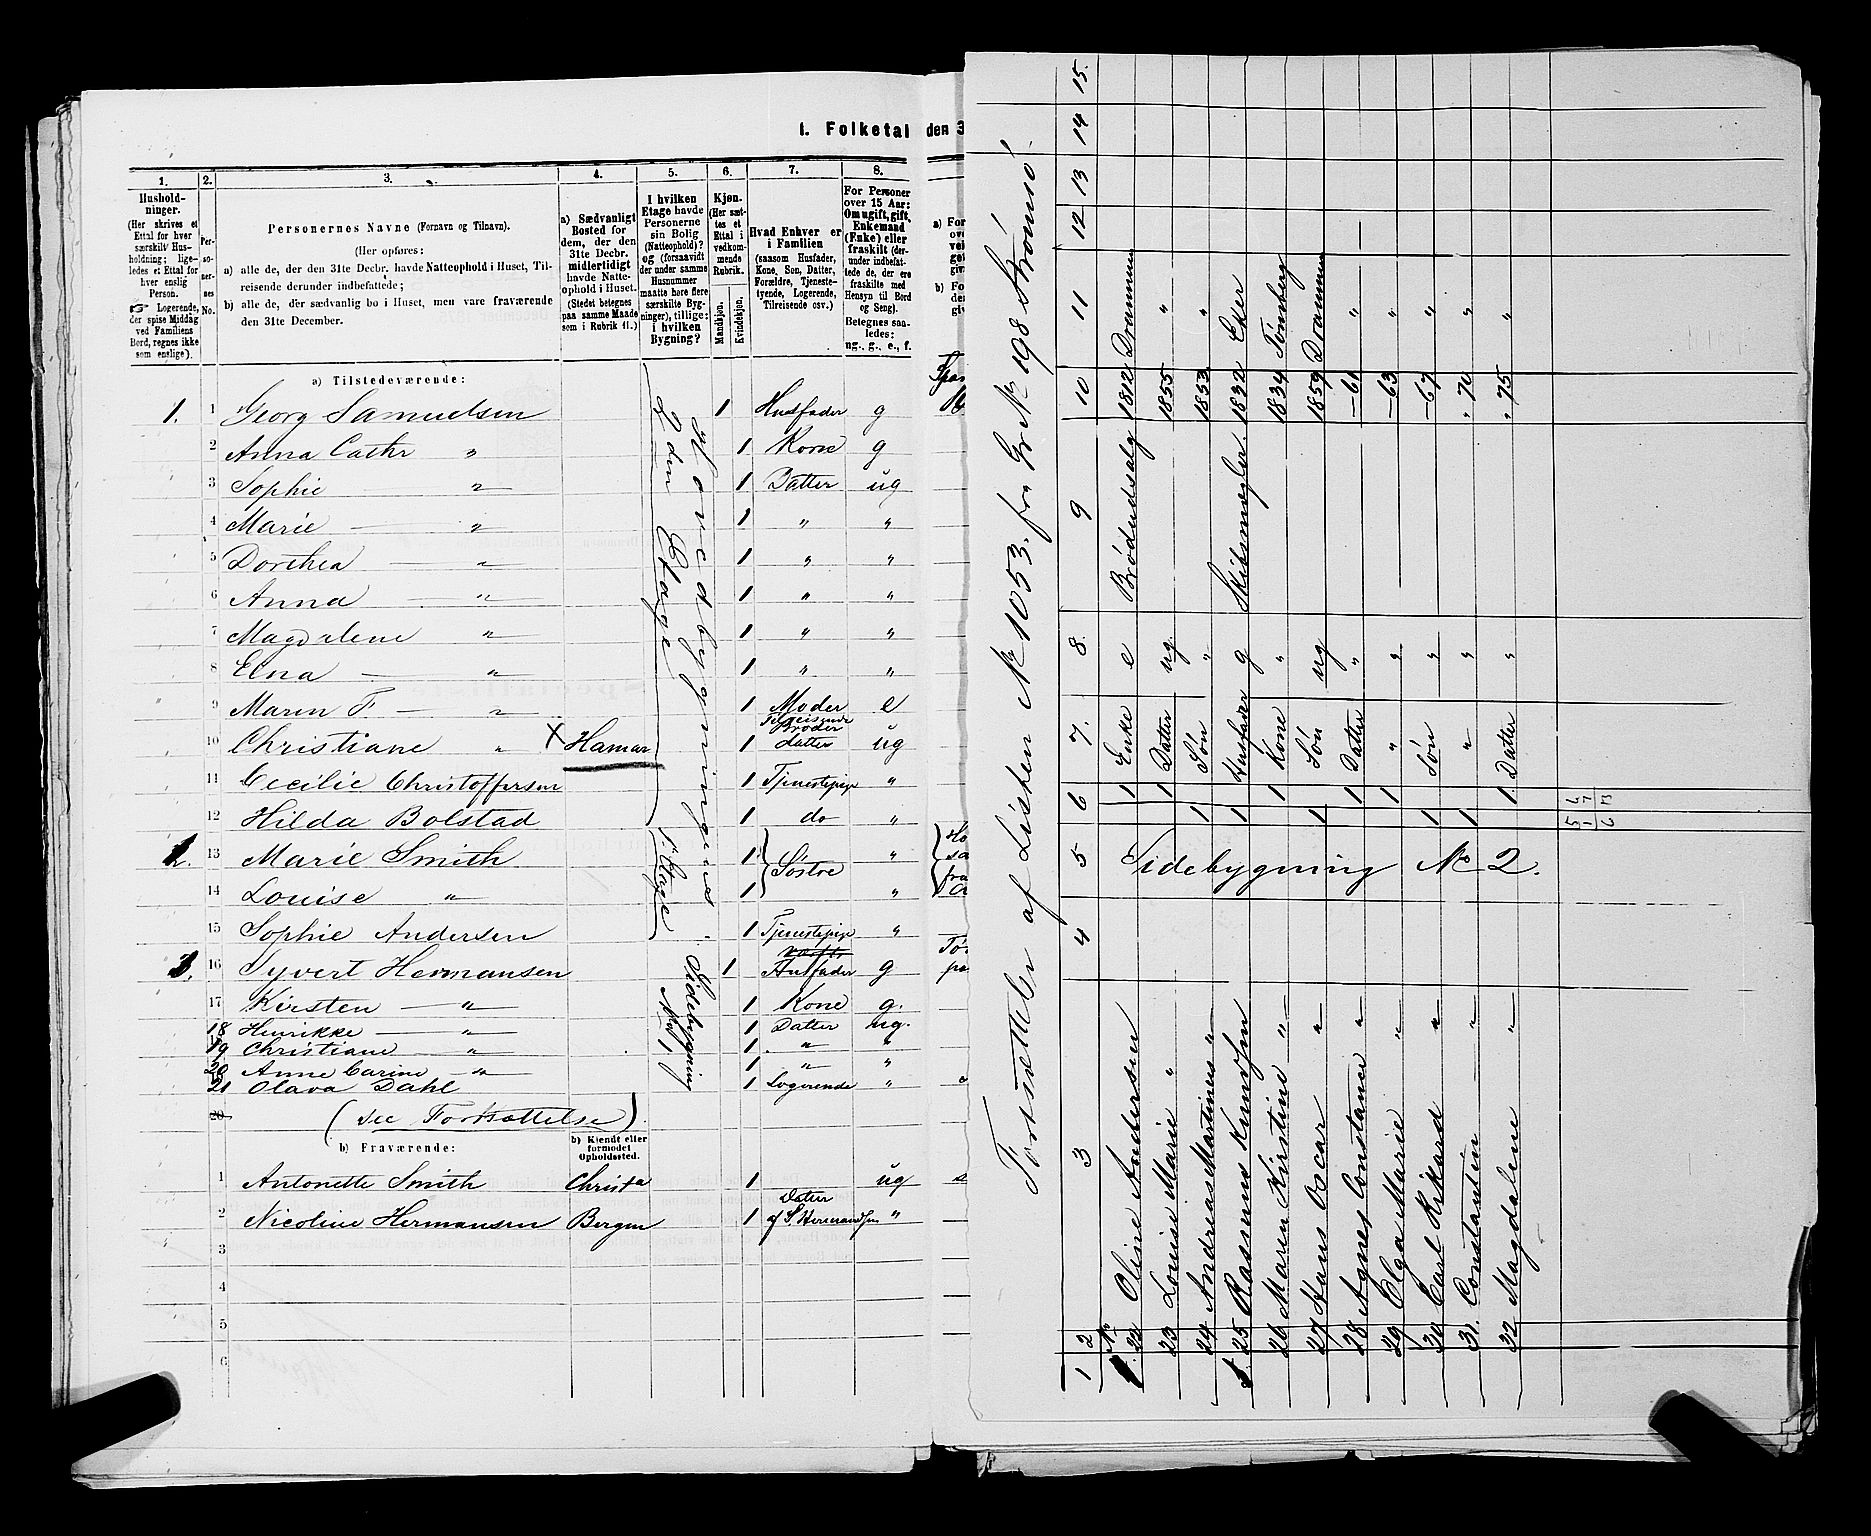 I. Folketal den 3
1.
Hushold-
ninger.
(Her skrives et
Ettal for hver
særskilt Hus-
holdning; lige-
ledes et Ettal for
hver enslig
Person.
Logerende,
der spise Middag
ved Familiens
Bord, regnes ikke
som enslige).
2.
Per-
so-
ner-
nes
No.
3.
Personernes Navne (Fornavn og Tilnavn).
(Her opføres:
a) alle de, der den 31te Decbr. havde Natteophold i Huset, Til-
reisende derunder indbefattede;
b) alle de, der sædvanlig bo i Huset, men vare fraværende
den 31te December.
4.
a) Sædvanligt
Bosted for
dem, der den
31te Decbr.
midlertidigt
havde Natte-
ophold i Huset.
(Stedet betegnes
paa samme Maade
som i Rubrik 11.)
5.
I hvilken
Etage havde
Personerne
sin Bolig
(Natteophold)?
og (forsaavidt
der under samme
Husnummer
maatte høre flere
særskilte Byg-
ninger), tillige:
i hvilken
Bygning?
6.
Kjøn.
(Her sæt-
tes et
Ettal i
vedkom-
mende
Rubrik.
Mandkjøn.
Kvindekjøn.
7.
Hvad Enhver er
i Familien
(saasom Husfader,
Kone, Søn, Datter,
Forældre, Tjeneste-
tyende, Logerende,
Tilreisende osv.)
8.
For Personer
over 15 Aar:
Om ugift, gift,
Enkemand
(Enke) eller
fraskilt (der-
under indbefat-
tede de, der ere
fraskilte med
Hensyn til Bord
og Seng).
Betegnes saa-
ledes:
ug., g., e., f.
a) Tilstedeværende:
1. 1 Georg Samuelsen 1 Husfader g
2 Anna Cathr " 1 Kone g
3 Sophie " 1 Datter ug
4 Marie " 1 " "
5 Dorthea " 1 " "
6 Anna " 1 " "
7 Magdalene " 1 " "
8 Elna " 1 " "
9 Maren F. " 1 Moder e
10 Christiane " X Hamar 1 Tilreisende Broder datter ug
11 Cecilie Christoffersen 1 Tjenestepige "
12 Hilda Bolstad 1 do "
2den Etage
Hovedbygningen
2. 13 Marie Smith 1 Søstre "
14 Louise " 1 "
15 Sophie Andersen 1 Tjenestepige "
1. Etage
3. 16 Syvert Hermansen 1 Husfader g
17 Kirsten " 1 Kone g.
18 Henrikke " 1 Datter ug.
19 Christiane " 1 " "
20 Anne Carine " 1 " "
21 Olava Dahl 1 Logerende "
Sidebygning
No 1
20 (see Fortsættelse)
b) Fraværende:
b) Kjendt eller
formodet
Opholdssted.
1 Antonette Smith Christa 1 ug
2 Nicoline Hermansen Bergen 1 Datter af S Hermansen "
3
4
5
6
Fortsættelse af Listen No 1053. fra Gr No 198 Strømsø.
1 2 3 4 5 6 7. 8. 9 10 11 12 13 14 15.
No
1. 22 Oline Andersen 1 Enke e Brødudsalg 1812 Drammen
23 Louise Marie " 1 Datter ug 1855 "
24 Andreas Martinus " 1 Søn " 1853 "
1. 25 Rasmus Knudsen 1 Husfader g Skibsmægler. 1832 Eker
26 Maren Kirstine " 1 Kone " 1834 Tønsberg
27 Hans Oscar " 1 Søn ug 1859 Drammen
28 Agnes Constance " 1 Datter " —61 "
29 Olga Marie " 1 " " —63 "
30 Carl Rikard " 1 Søn " —67 "
31. Constantin " 1 " " " 70 "
32 Magdalene " 1 Datter " " 75 "
Sidebygning No 2.